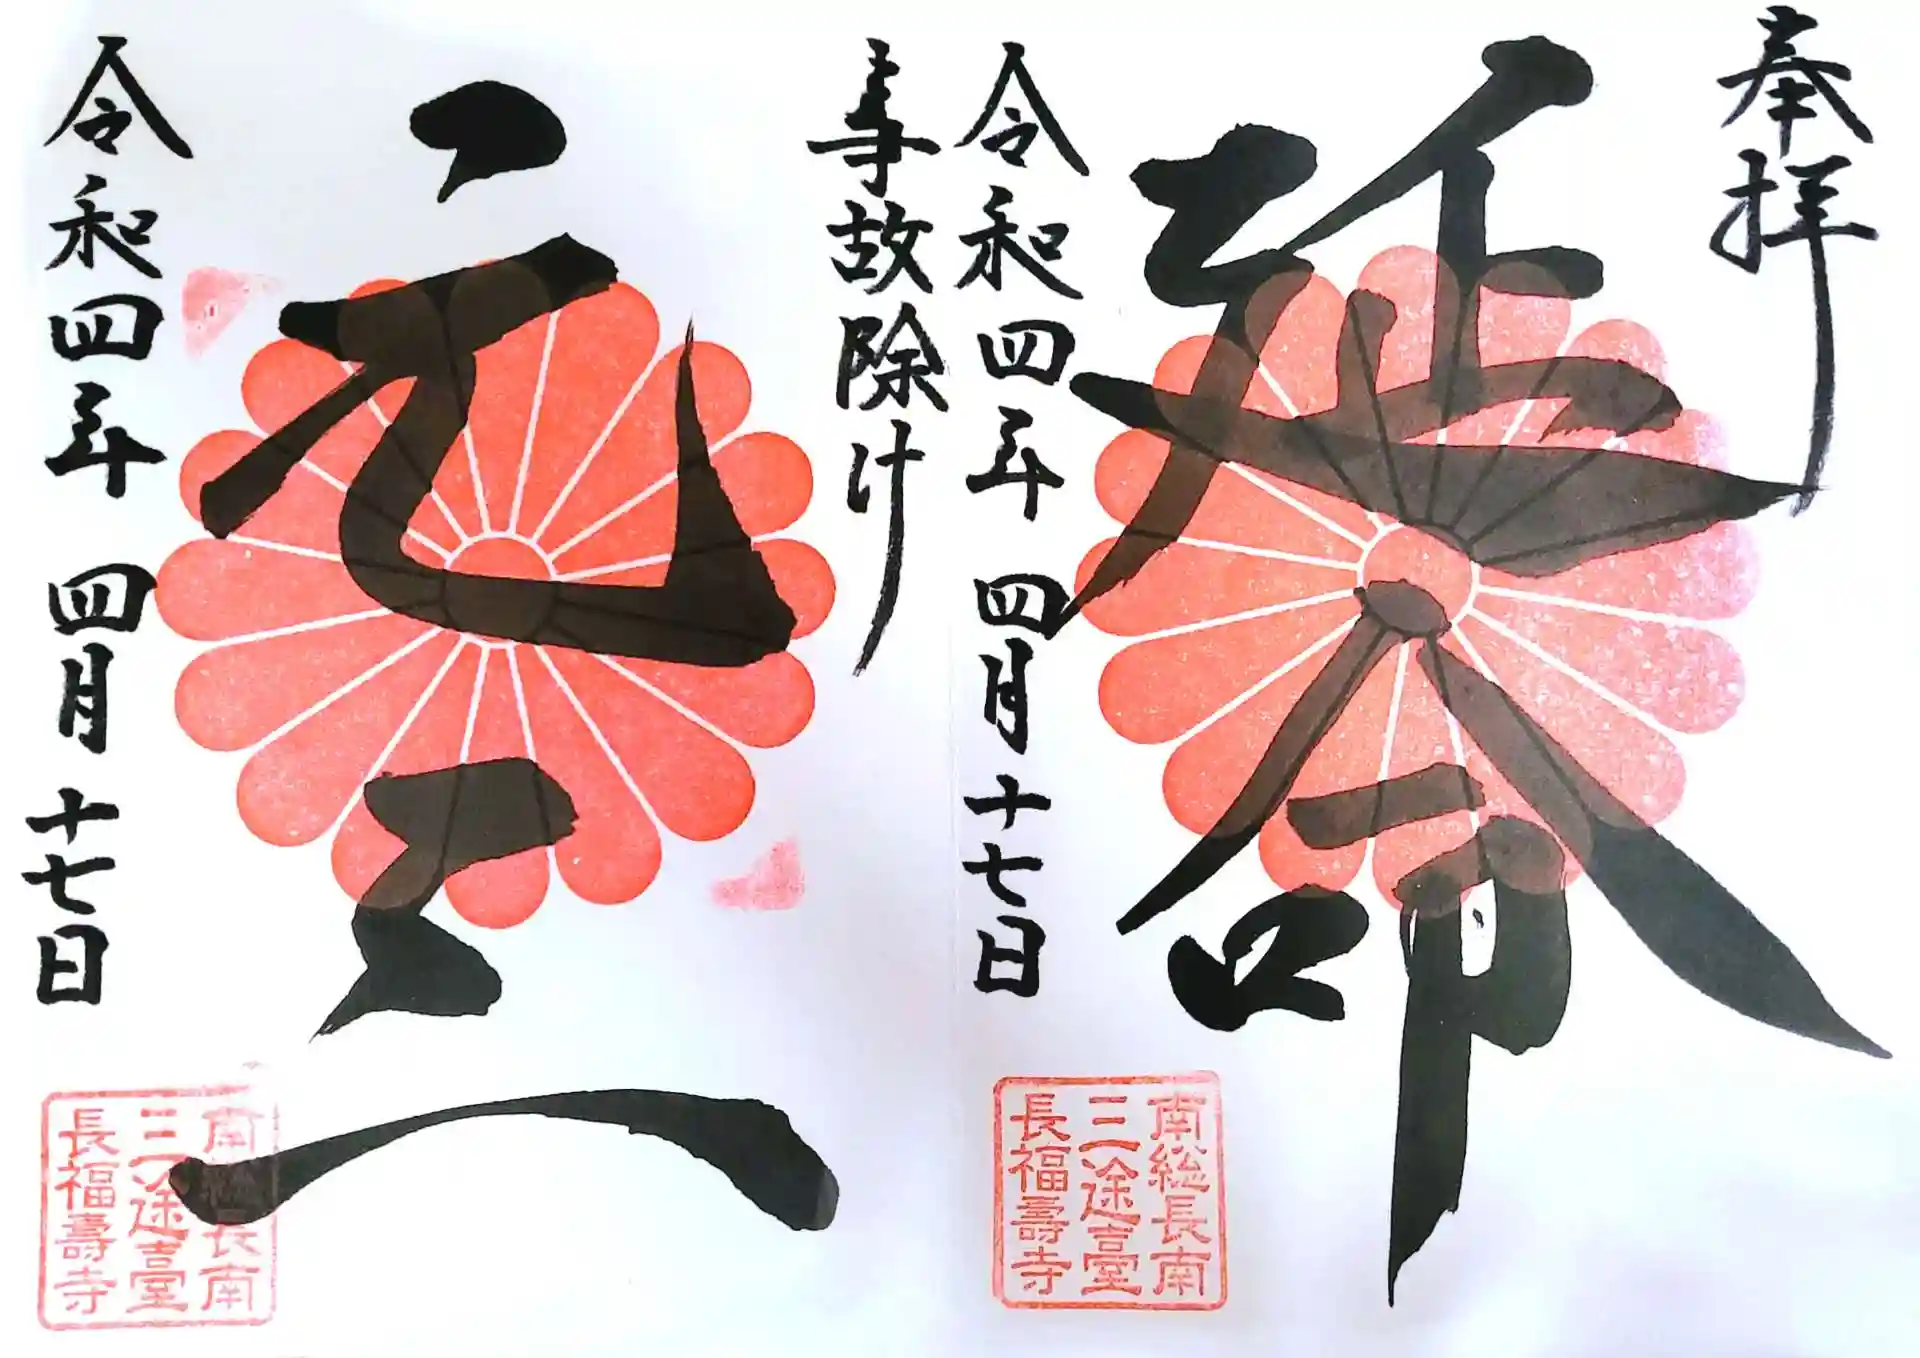 奉拝
延命
令和四年 四月十七日
南総長南
三途臺
長福壽寺
事故除け
元三
令和四年 四月十七日
南総長南
三途臺
長福壽寺